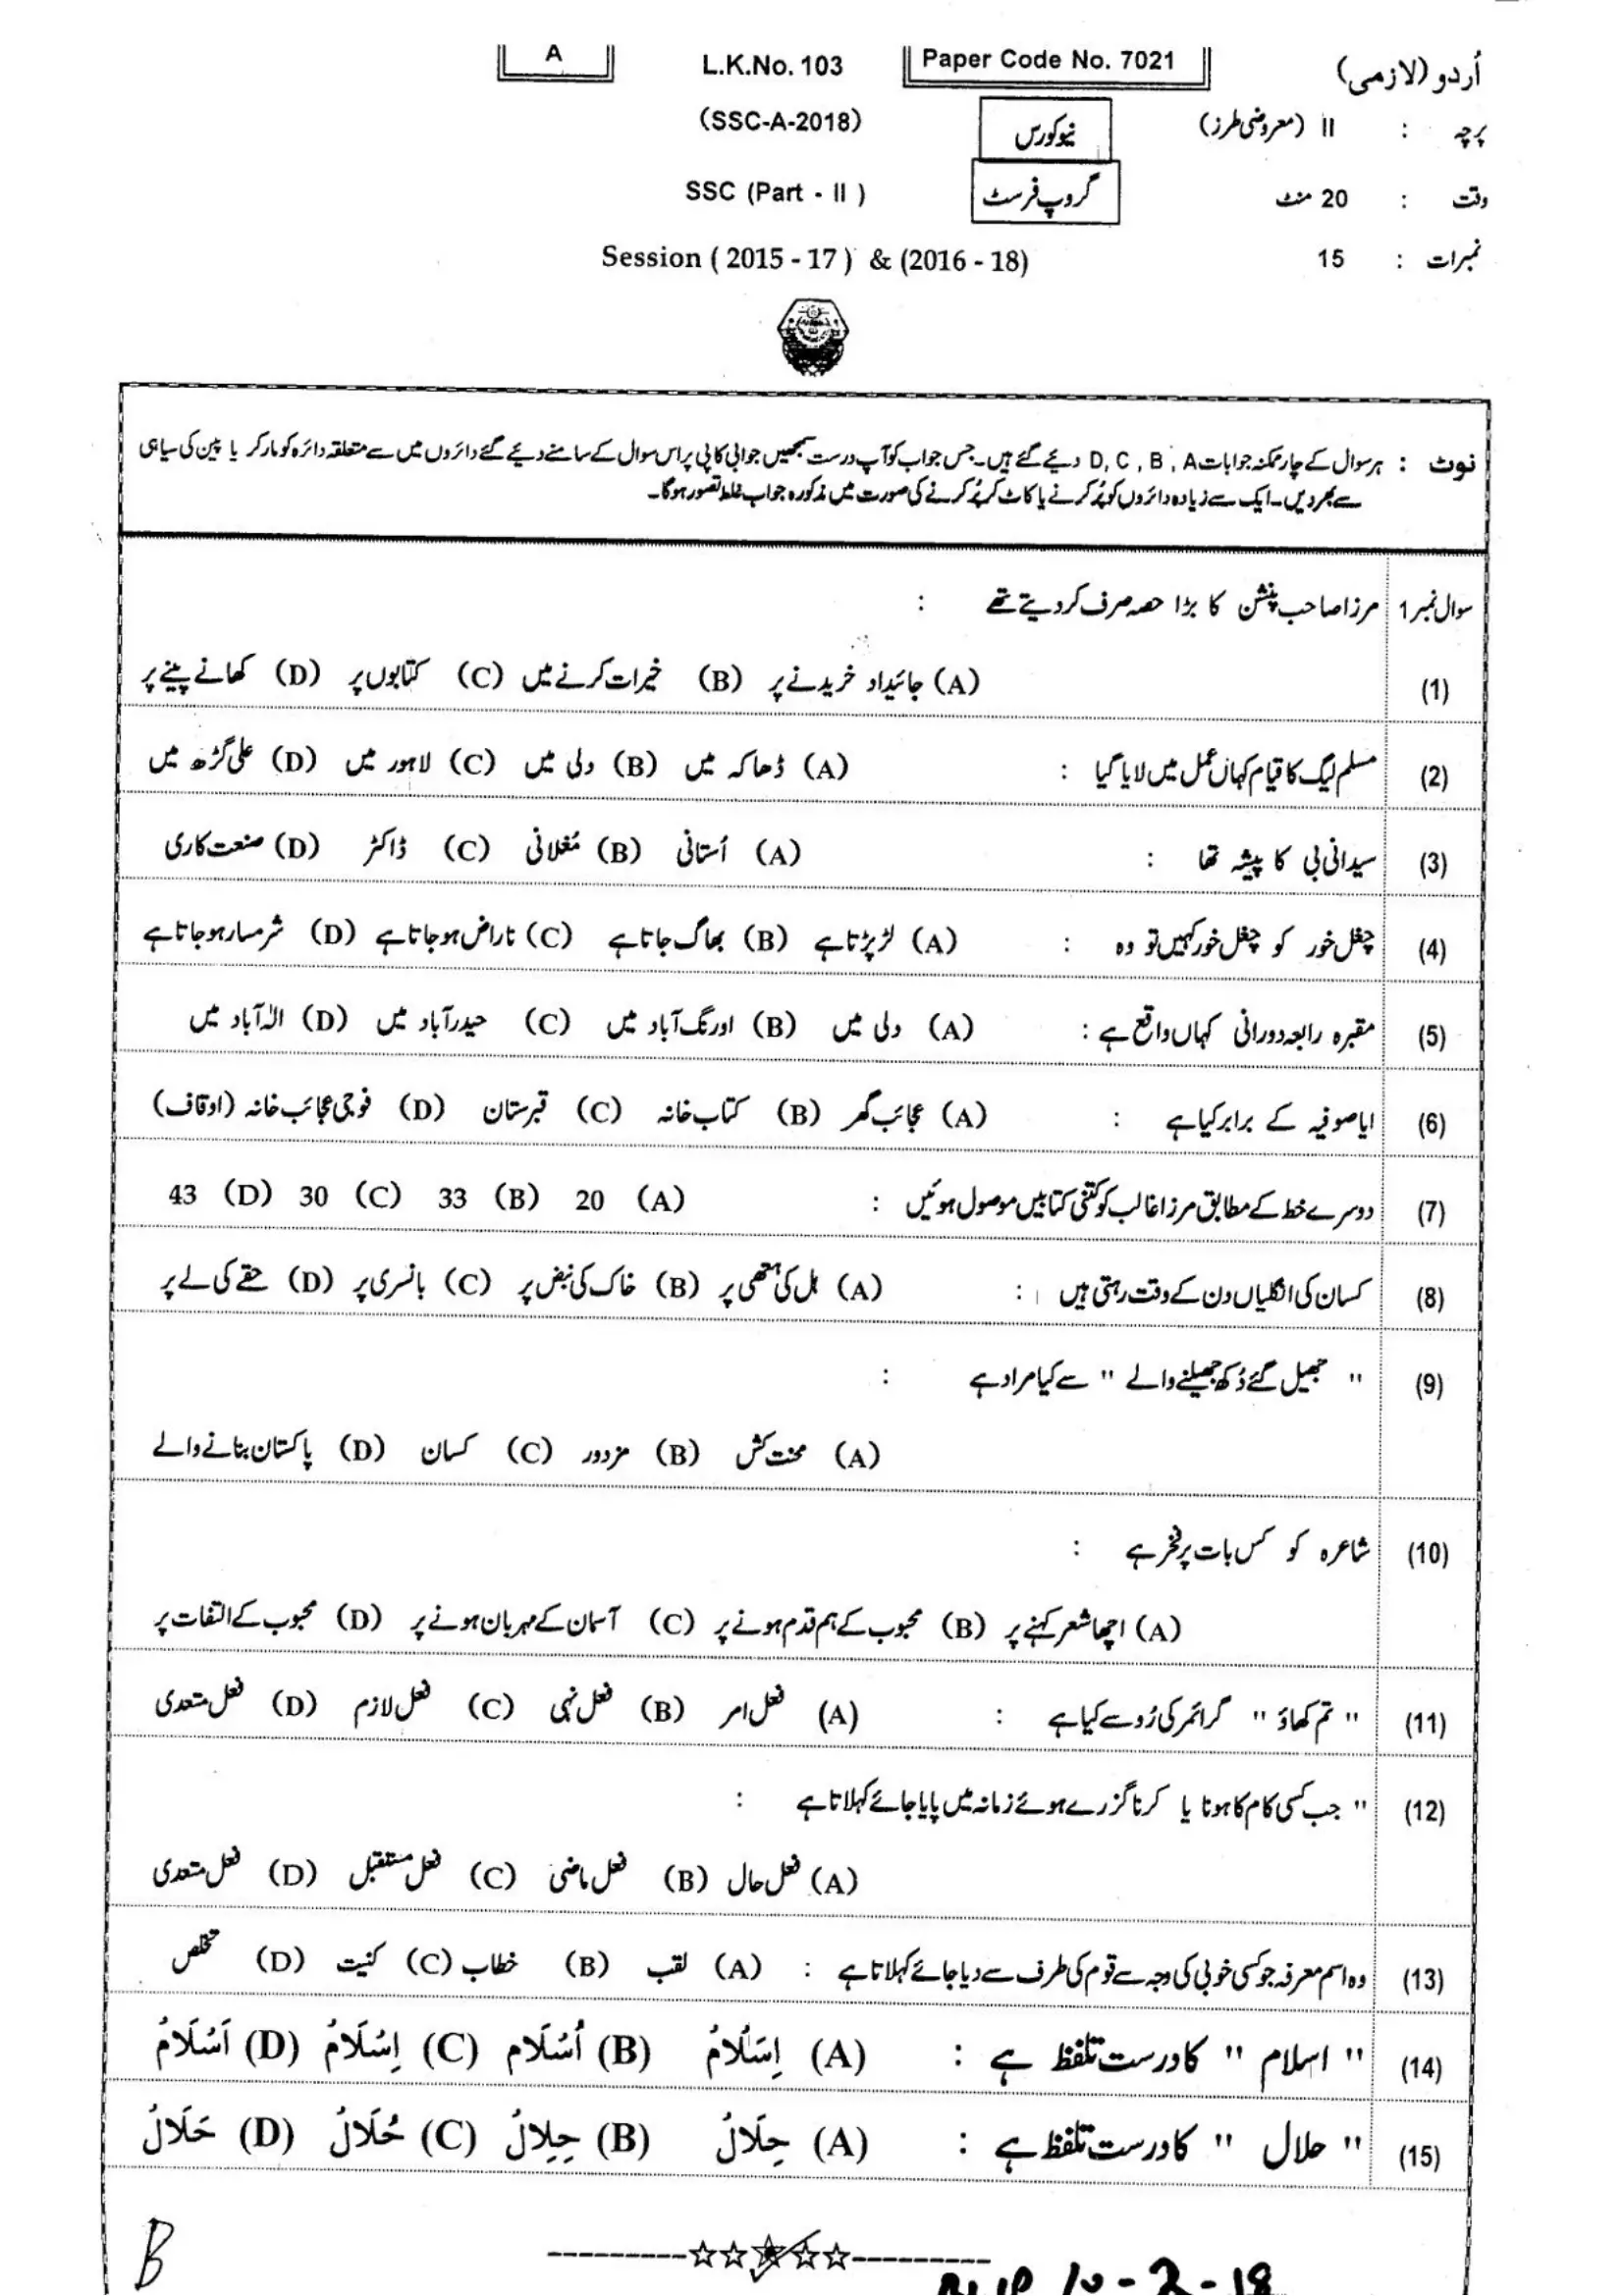 اُردو (لازمی) Paper Code No. 7021 L.K.No. 103 A
پرچہ : II (معروضی طرز) نیو کورس (SSC-A-2018)
وقت : 20 منٹ گروپ فرسٹ SSC (Part - II )
نمبرات : 15 Session ( 2015 - 17 ) & (2016 - 18)
نوٹ : ہر سوال کے چار ممکنہ جوابات D, C , B , A دیئے گئے ہیں۔ جس جواب کو آپ درست سمجھیں جوابی کاپی پر اس سوال کے سامنے دیئے گئے دائروں میں سے متعلقہ دائرہ کو مارکر یا پین کی سیاہی
سے بھر دیں۔ ایک سے زیادہ دائروں کو پُر کرنے یا کاٹ کر پُر کرنے کی صورت میں مذکورہ جواب غلط تصور ہوگا۔
سوال نمبر 1 مرزا صاحب پنشن کا بڑا حصہ صرف کر دیتے تھے :
(1) (A) جائیداد خریدنے پر (B) خیرات کرنے میں (C) کتابوں پر (D) کھانے پینے پر
(2) مسلم لیگ کا قیام کہاں عمل میں لایا گیا : (A) ڈھاکہ میں (B) دلی میں (C) لاہور میں (D) علی گڑھ میں
(3) سیدانی بی کا پیشہ تھا : (A) اُستانی (B) مُغلانی (C) ڈاکٹر (D) صنعت کاری
(4) چغل خور کو چغل خور کہیں تو وہ : (A) لڑ پڑتا ہے (B) بھاگ جاتا ہے (C) ناراض ہو جاتا ہے (D) شرمسار ہو جاتا ہے
(5) مقبرہ رابعہ دورانی کہاں واقع ہے : (A) دلی میں (B) اورنگ آباد میں (C) حیدر آباد میں (D) الٰہ آباد میں
(6) ایا صوفیہ کے برابر کیا ہے : (A) عجائب گھر (B) کتاب خانہ (C) قبرستان (D) فوجی عجائب خانہ (اوقاف)
(7) دوسرے خط کے مطابق مرزا غالب کو کتنی کتابیں موصول ہوئیں : (A) 20 (B) 33 (C) 30 (D) 43
(8) کسان کی انگلیاں دن کے وقت رہتی ہیں : (A) ہل کی ہتھی پر (B) خاک کی نبض پر (C) بانسری پر (D) حقے کی لے پر
(9) " جھیل گئے دُکھ جھیلنے والے " سے کیا مراد ہے :
(A) محنت کش (B) مزدور (C) کسان (D) پاکستان بنانے والے
(10) شاعرہ کو کس بات پر فخر ہے :
(A) اچھا شعر کہنے پر (B) محبوب کے ہم قدم ہونے پر (C) آسمان کے مہربان ہونے پر (D) محبوب کے التفات پر
(11) " تم کھاؤ " گرائمر کی رُو سے کیا ہے : (A) فعل امر (B) فعل نہی (C) فعل لازم (D) فعل متعدی
(12) " جب کسی کام کا ہونا یا کرنا گزرے ہوئے زمانہ میں پایا جائے کہلاتا ہے :
(A) فعل حال (B) فعل ماضی (C) فعل مستقبل (D) فعل متعدی
(13) وہ اسم معرفہ جو کسی خوبی کی وجہ سے قوم کی طرف سے دیا جائے کہلاتا ہے : (A) لقب (B) خطاب (C) کنیت (D) تخلص
(14) " اسلام " کا درست تلفظ ہے : (A) اِسَلَامُ (B) اُسْلَام (C) اِسْلَامُ (D) اَسْلَامُ
(15) " حلال " کا درست تلفظ ہے : (A) حِلَالُ (B) حِلِالُ (C) حُلَالُ (D) حَلَالُ
B
10-3-18